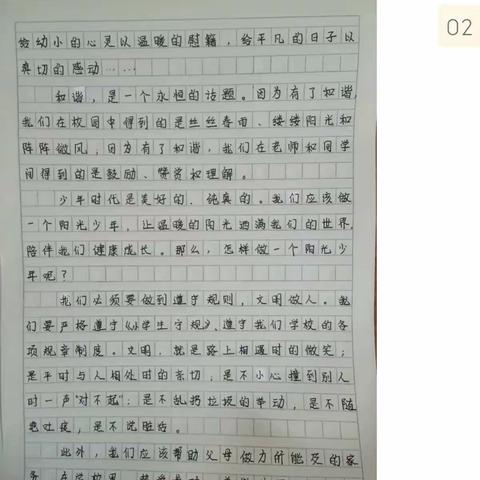 02
给幼小的心灵以温暖的慰籍，给平凡的日子以
真切的感动……
和谐，是一个永恒的话题。因为有了和谐，
我们在校园中得到的是丝丝春雨、缕缕阳光和
阵阵微风，因为有了和谐，我们在老师和同学
间得到的是鼓励、赞赏和理解。
少年时代是美好的、纯真的。我们应该做
一个阳光少年，让温暖的阳光洒满我们的世界，
陪伴我们健康成长。那么，怎样做一个阳光少
年呢？
我们必须要做到遵守规则，文明做人。我
们要严格遵守《小学生守规》、遵守我们学校的各
项规章制度。文明，就是路上相遇时的微笑；
是平时与人相处时的亲切；是不小心撞到别人
时一声“对不起”；是不乱扔垃圾的举动，是不随
地吐痰，是不说脏话。
此外，我们应该帮助父母做力所能及的家